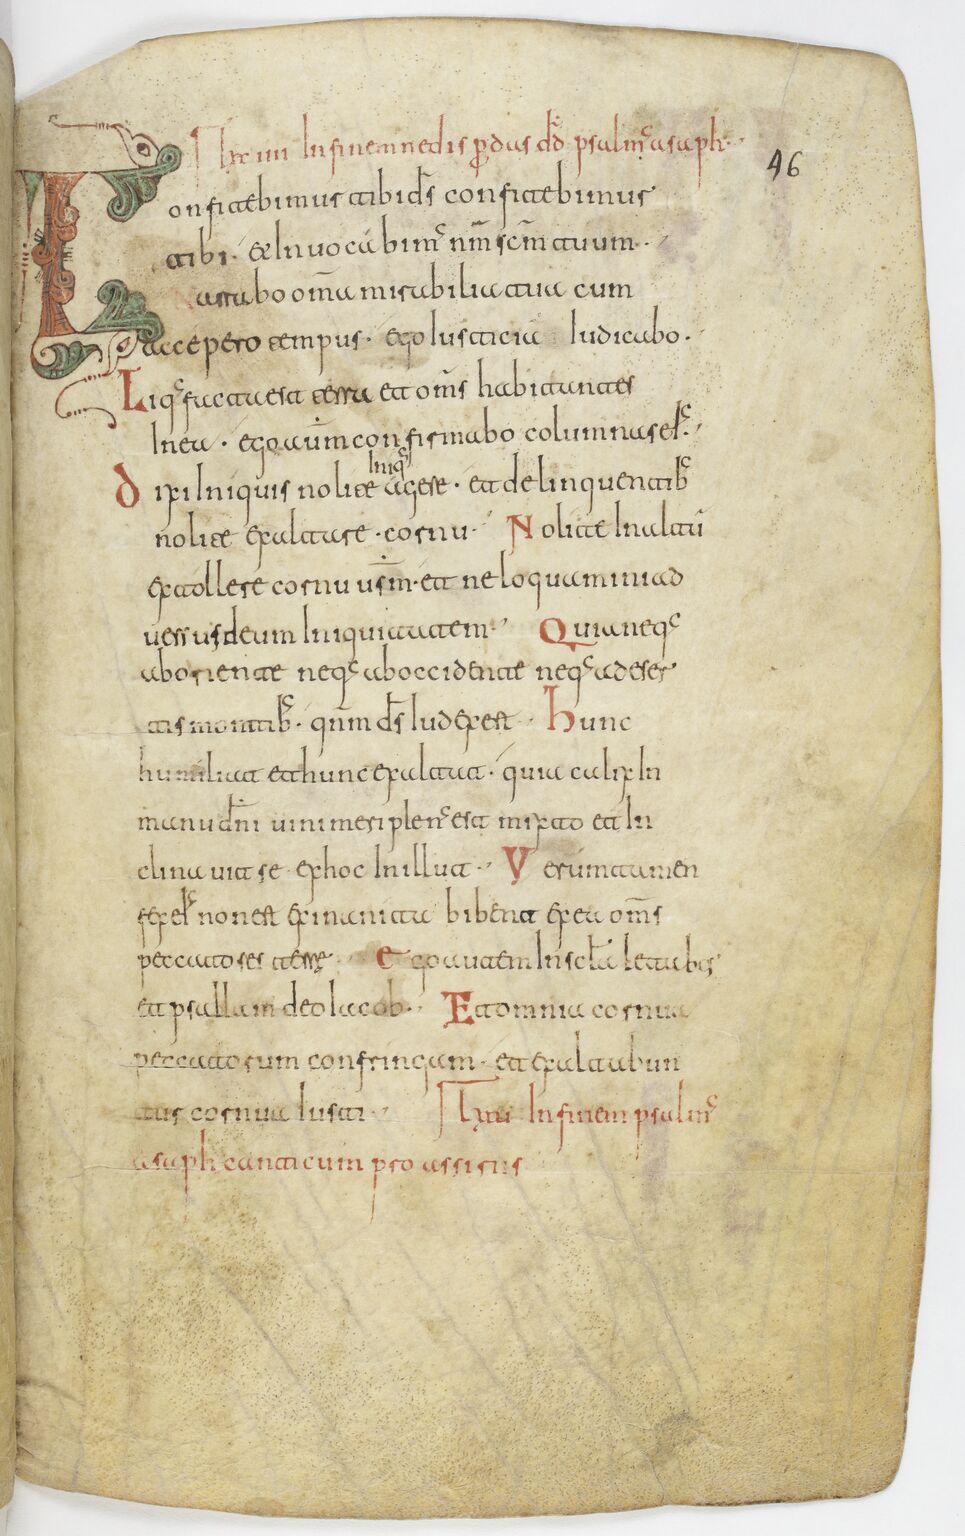 lxxiiii In finem ne disperdas dd psalmꝰ asaph·
46
Confitebimus tibi ds̄ confitebimus
tibi· & Inuocabimꝰ nm̄ sc̄m tuum·
narrabo om̄a mirabilia tua cum
accepero tempus· ego Iusticiā Iudicabo·
Liqꝰfacta est terra et om̄s habitantes
In ea· ego autm̄ confirmabo columnas eiꝰ·
Dixi Iniquis nolite Iniqꝰ agere· et delinquentibꝰ
nolite exaltare· cornu· Nolite In altū
extollere cornu ur̄m· et ne loquamini ad
uersus deum Iniquitatem· Quia neqꝰ
ab oriente neqꝰ ab occidente neqꝰ a deser
tis montibꝰ· qnm̄ ds̄ Iudex est· hunc
humiliat et hunc exaltat· quia calix In
manu dn̄i uini meri plenꝰ est mixto et In
clinauit se ex hoc In illut· Verumtamen
fex eiꝰ non est exinanita bibent ex ea om̄s
peccatores terrę· Ego autem In sc̄la letabor
et psallam deo Iacob· Et omnia cornua
peccatorum confringam· et exaltabun
tur cornua Iusti· lxxu In finem psalmꝰ
asaph canticum pro assirius